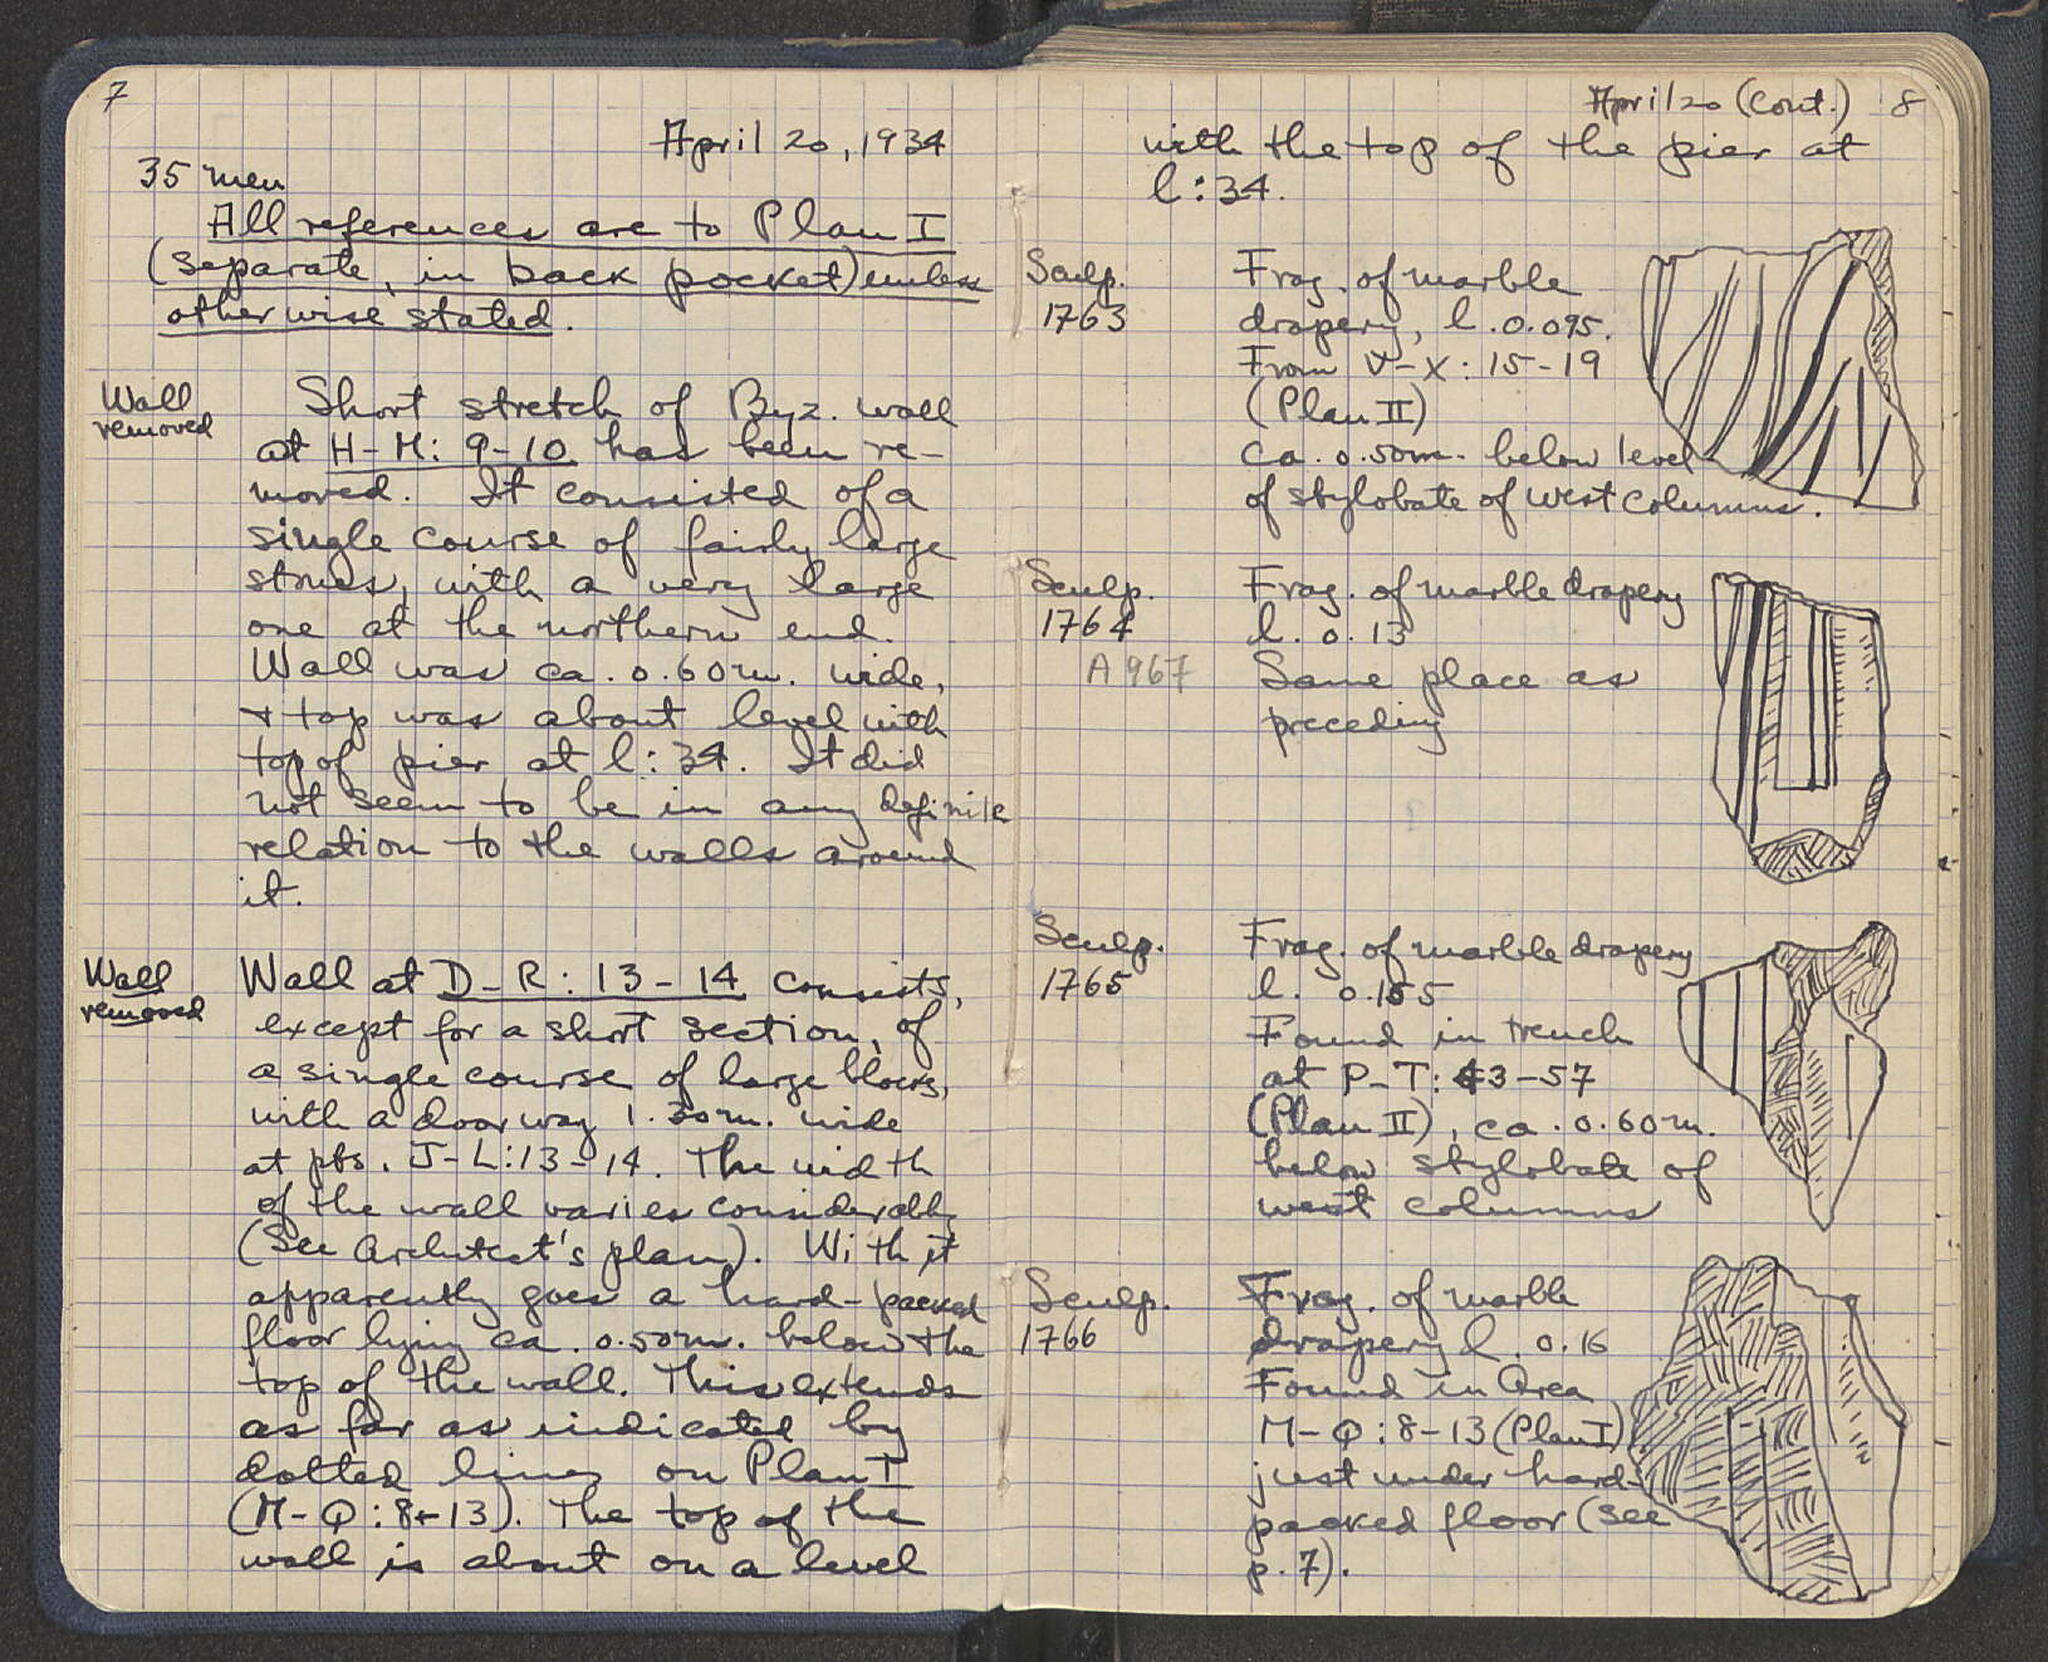 7
April 20, 1934
35 men
All references are to Plan I
(separate, in back pocket) unless
otherwise stated.
Wall
removed
Short stretch of Byz. wall
at H-M: 9-10 has been re-
moved. It consisted of a
single course of fairly large
stones, with a very large
one at the northern end.
Wall was ca. 0.60m. wide,
+ top was about level with
top of pier at l:34. It did
not seem to be in any definite
relation to the walls around
it.
Wall
removed
Wall at D-R: 13-14 consists,
except for a short section, of
a single course of large blocks,
with a doorway 1.30m. wide
at pts. J-L:13-14. The width
of the wall varies considerably
(See Architect's plan). With it
apparently goes a hard-packed
floor lying ca. 0.50m. below the
top of the wall. This extends
as far as indicated by
dotted lines on Plan I
(M-Q:8-13). The top of the
wall is about on a level
April 20 (cont.) 8
with the top of the pier at
l:34.
Sculp.
1763
Frag. of marble
drapery, l. 0.095.
From V-X: 15-19
(Plan II)
ca. 0.50m. below level
of stylobate of west columns.
Sculp.
1764
A 967
Frag. of marble drapery
l. 0.13
Same place as
preceding
Sculp.
1765
Frag. of marble drapery
l. 0.155
Found in trench
at P-T: 43-57
(Plan II), ca. 0.60m.
below stylobate of
west columns
Sculp.
1766
Frag. of marble
drapery l. 0.16
Found in Area
M-Q:8-13 (Plan I)
just under hard-
packed floor (see
p. 7).